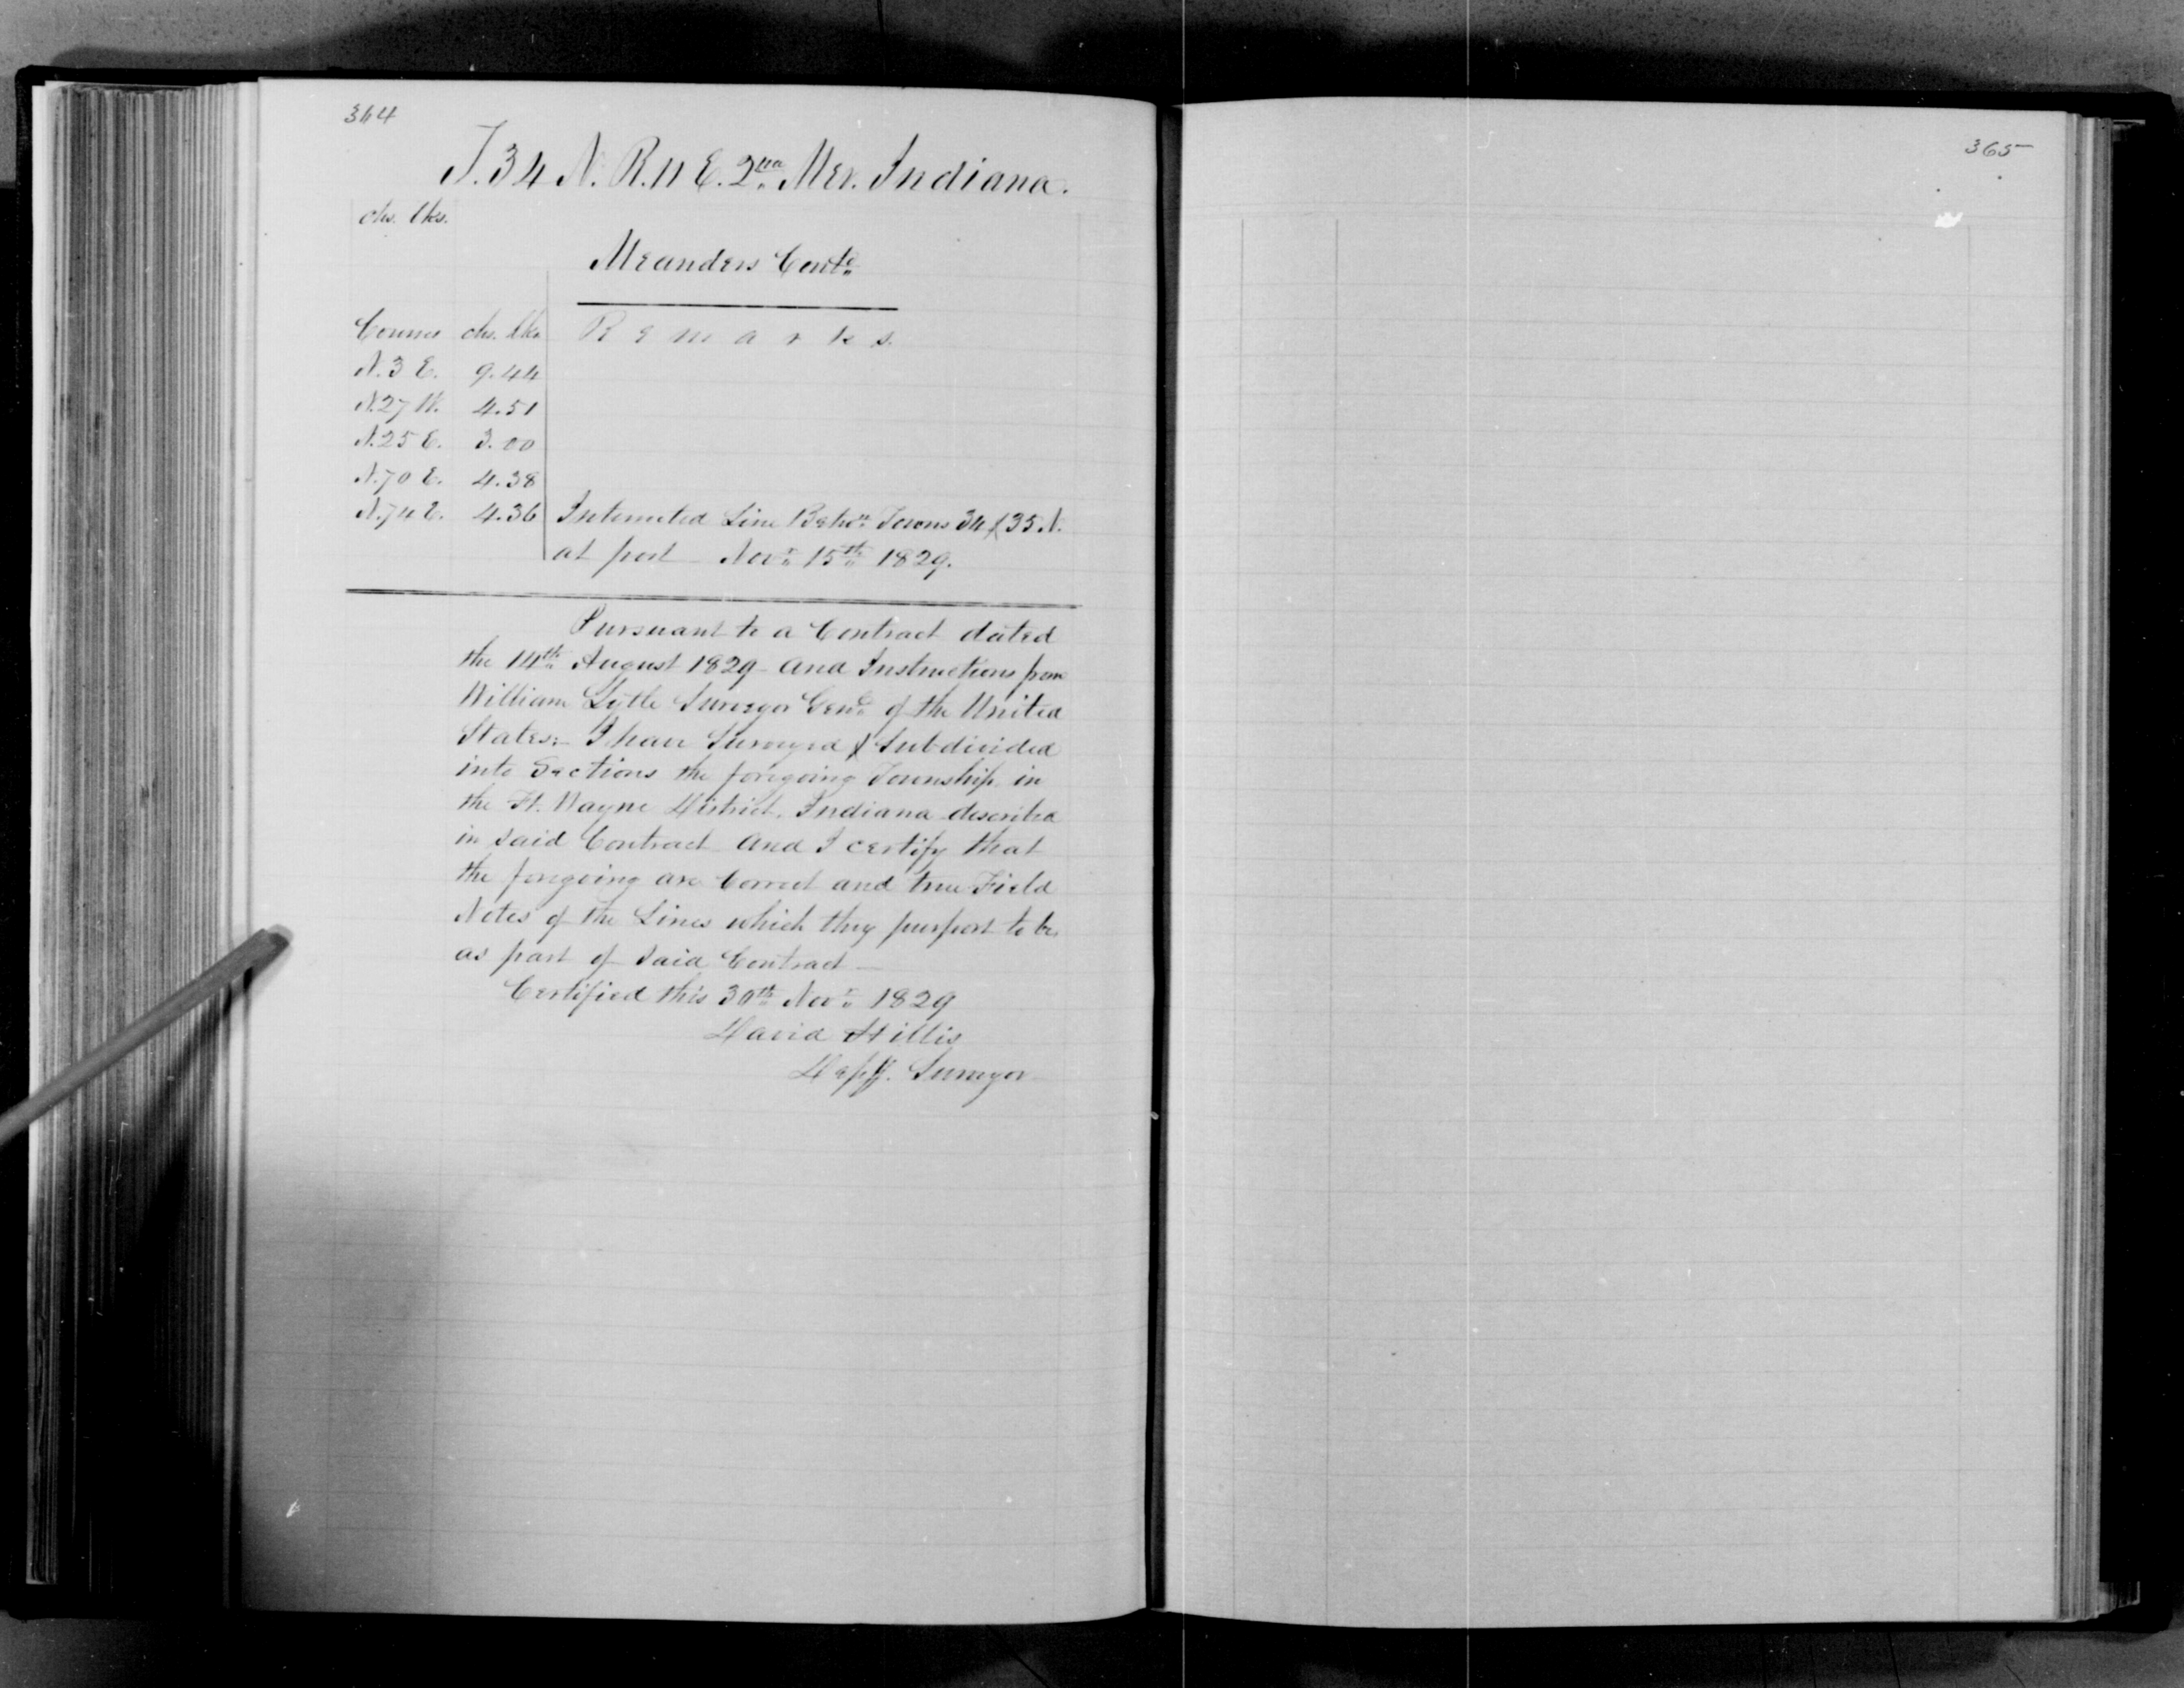 364
T. 34 N. R. 11 E. 2nd Mer. Indiana.
chs. lks.
Meanders Contd
Courses chs. lks. Remarks.
N. 3 E. 9.44
N. 27 W. 4.51
N. 25 E. 3.00
N. 70 E. 4.38
N. 74 E. 4.36 Intersected Line Betwn Towns 34 & 35 N.
at post Novr 15th 1829.
Pursuant to a Contract dated
the 14th August 1829 and Instructions from
William Lytle Surveyor Genl of the United
States:- I have Surveyed & Subdivided
into Sections the foregoing Township in
the Ft. Wayne District, Indiana described
in said Contract and I certify that
the foregoing are Correct and true Field
Notes of the Lines which they purport to be,
as part of said Contract—
Certified this 30th Novr 1829
David Hillis
Depy. Surveyor
365